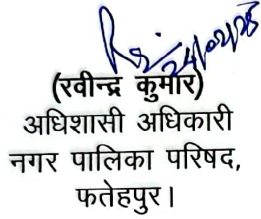 (रवीन्द्र कुमार)
अधिशासी अधिकारी
नगर पालिका परिषद,
फतेहपुर।